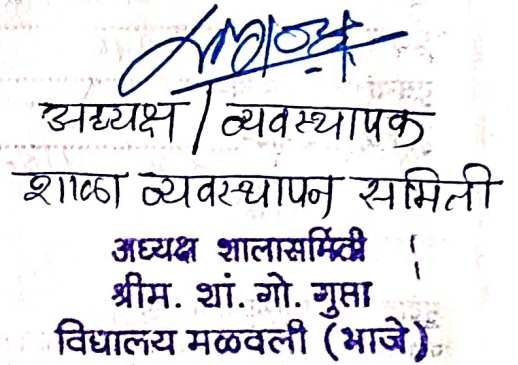 अध्यक्ष / व्यवस्थापक
शाळा व्यवस्थापन समिती
अध्यक्ष शालासमिती
श्रीम. शां. गो. गुप्ता
विद्यालय मळवली (भाजे)